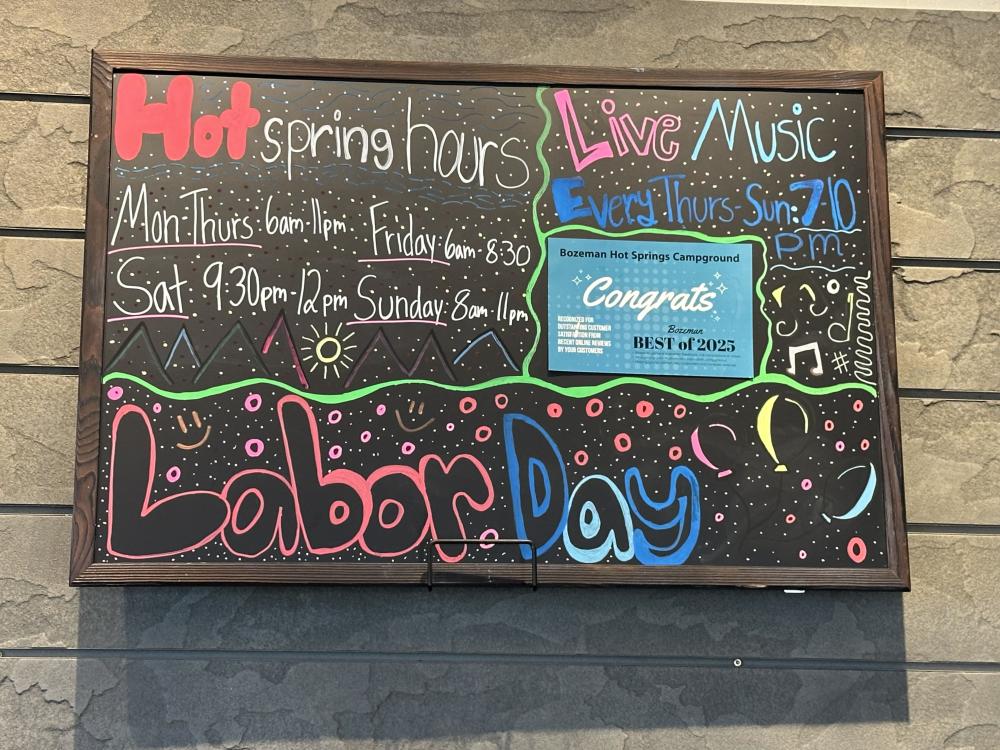 Hot spring hours
Mon-Thurs 6am-11pm
Friday: 6am-8:30
Sat 9:30pm-12pm
Sunday: 8am-11pm
Live Music
Every Thurs-Sun: 7-10
pm
Bozeman Hot Springs Campground
Congrats
RECOGNIZED FOR
OUTSTANDING CUSTOMER
SATISFACTION FROM
RECENT ONLINE REVIEWS
BY YOUR CUSTOMERS
Bozeman
BEST of 2025
#
Labor Day